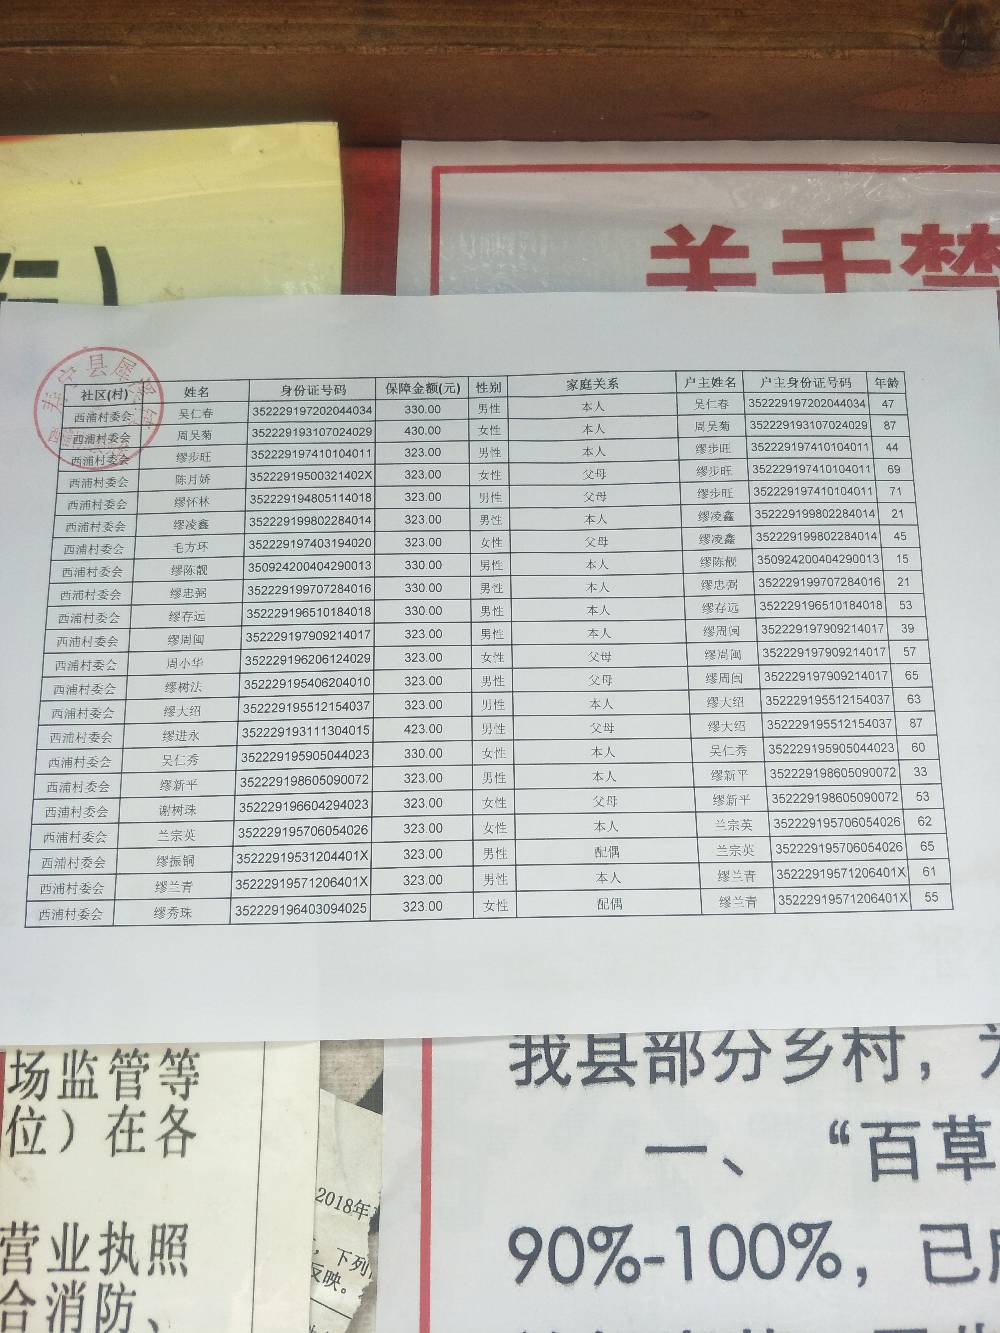 行）
关于禁
寿宁县犀
社区(村) 姓名 身份证号码 保障金额(元) 性别 家庭关系 户主姓名 户主身份证号码 年龄
西浦村委会 吴仁春 352229197202044034 330.00 男性 本人 吴仁春 352229197202044034 47
西浦村委会 周吴菊 352229193107024029 430.00 女性 本人 周吴菊 352229193107024029 87
西浦村委会 缪步旺 352229197410104011 323.00 男性 本人 缪步旺 352229197410104011 44
西浦村委会 陈月娇 35222919500321402X 323.00 女性 父母 缪步旺 352229197410104011 69
西浦村委会 缪怀林 352229194805114018 323.00 男性 父母 缪步旺 352229197410104011 71
西浦村委会 缪凌鑫 352229199802284014 323.00 男性 本人 缪凌鑫 352229199802284014 21
西浦村委会 毛方环 352229197403194020 323.00 女性 父母 缪凌鑫 352229199802284014 45
西浦村委会 缪陈靓 350924200404290013 330.00 男性 本人 缪陈靓 350924200404290013 15
西浦村委会 缪忠弼 352229199707284016 330.00 男性 本人 缪忠弼 352229199707284016 21
西浦村委会 缪存远 352229196510184018 330.00 男性 本人 缪存远 352229196510184018 53
西浦村委会 缪周闽 352229197909214017 323.00 男性 本人 缪周闽 352229197909214017 39
西浦村委会 周小华 352229196206124029 323.00 女性 父母 缪周闽 352229197909214017 57
西浦村委会 缪树法 352229195406204010 323.00 男性 父母 缪周闽 352229197909214017 65
西浦村委会 缪大绍 352229195512154037 323.00 男性 本人 缪大绍 352229195512154037 63
西浦村委会 缪进永 352229193111304015 423.00 男性 父母 缪大绍 352229195512154037 87
西浦村委会 吴仁秀 352229195905044023 330.00 女性 本人 吴仁秀 352229195905044023 60
西浦村委会 缪新平 352229198605090072 323.00 男性 本人 缪新平 352229198605090072 33
西浦村委会 谢树珠 352229196604294023 323.00 女性 父母 缪新平 352229198605090072 53
西浦村委会 兰宗英 352229195706054026 323.00 女性 本人 兰宗英 352229195706054026 62
西浦村委会 缪振铜 35222919531204401X 323.00 男性 配偶 兰宗英 352229195706054026 65
西浦村委会 缪兰青 35222919571206401X 323.00 男性 本人 缪兰青 35222919571206401X 61
西浦村委会 缪秀珠 352229196403094025 323.00 女性 配偶 缪兰青 35222919571206401X 55
场监管等
位）在各
营业执照
合消防、
2018年
，下列
反映。
我县部分乡村，
一、“百草
90%-100%，已